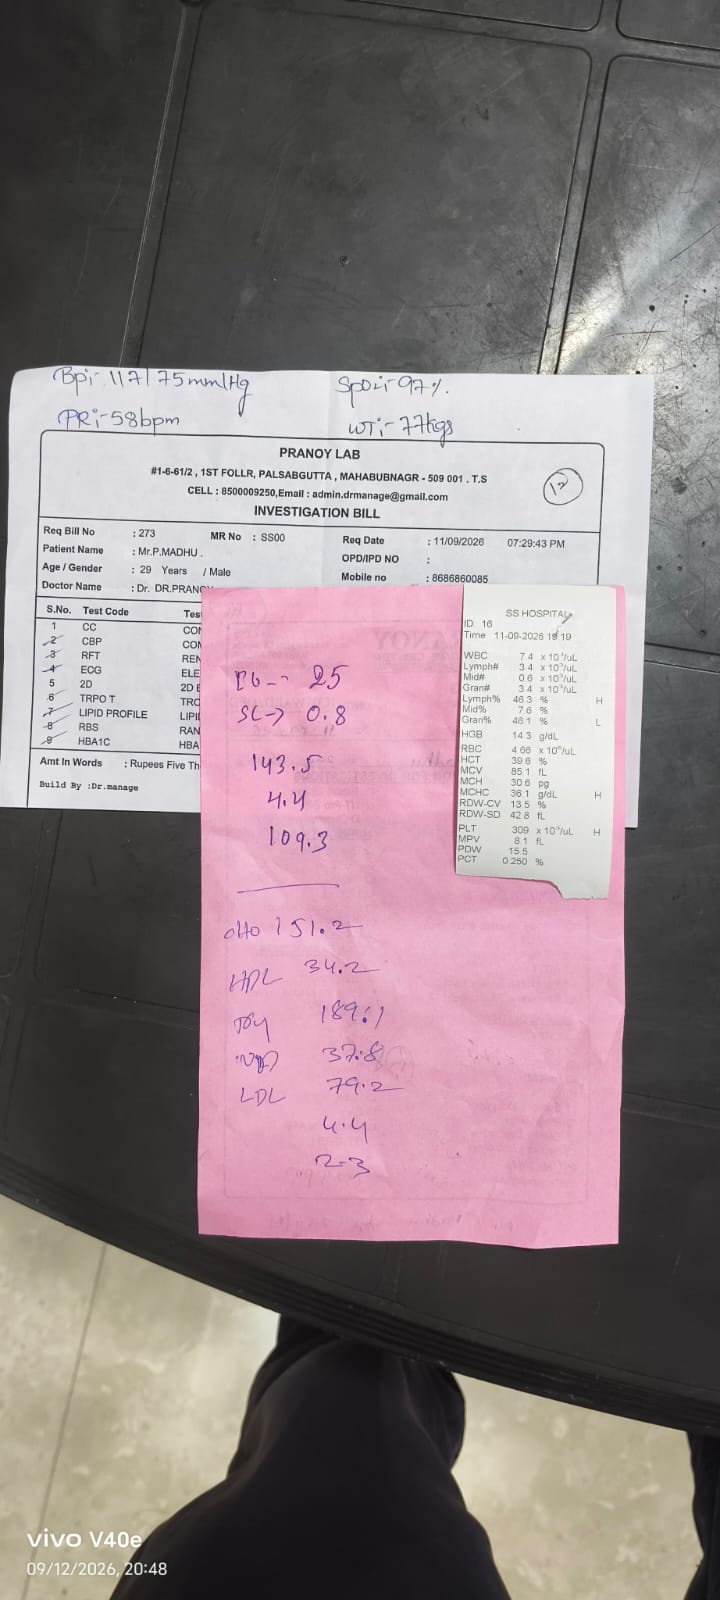 Bp:- 117/75mmHg
Spo2:- 97%.
PR:- 58bpm
WT:- 77kgs
PRANOY LAB
#1-6-61/2 , 1ST FOLLR, PALSABGUTTA , MAHABUBNAGR - 509 001 . T.S
CELL : 8500009250,Email : admin.drmanage@gmail.com
12
INVESTIGATION BILL
Req Bill No : 273 MR No : SS00 Req Date : 11/09/2026 07:29:43 PM
Patient Name : Mr.P.MADHU . OPD/IPD NO :
Age / Gender : 29 Years / Male Mobile no : 8686860085
Doctor Name : Dr. DR.PRANOY
S.No. Test Code Tes
1 CC COM
2 CBP COM
3 RFT REN
4 ECG ELE
5 2D 2D E
6 TRPO T TRO
7 LIPID PROFILE LIPI
8 RBS RAN
9 HBA1C HBA
Amt In Words : Rupees Five Th
Build By :Dr.manage
SS HOSPITAL
ID 16
Time 11-09-2026 19:19
WBC 7.4 x 10³/uL
Lymph# 3.4 x 10³/uL
Mid# 0.6 x 10³/uL
Gran# 3.4 x 10³/uL
Lymph% 46.3 % H
Mid% 7.6 %
Gran% 46.1 % L
HGB 14.3 g/dL
RBC 4.66 x 10⁶/uL
HCT 39.6 %
MCV 85.1 fL
MCH 30.6 pg
MCHC 36.1 g/dL H
RDW-CV 13.5 %
RDW-SD 42.8 fL
PLT 309 x 10³/uL H
MPV 8.1 fL
PDW 15.5
PCT 0.250 %
25
SC-> 0.8
143.5
4.4
109.3
151.2
HDL 34.2
189.1
37.8
LDL 79.2
4.4
2.3
vivo V40e
09/12/2026, 20:48